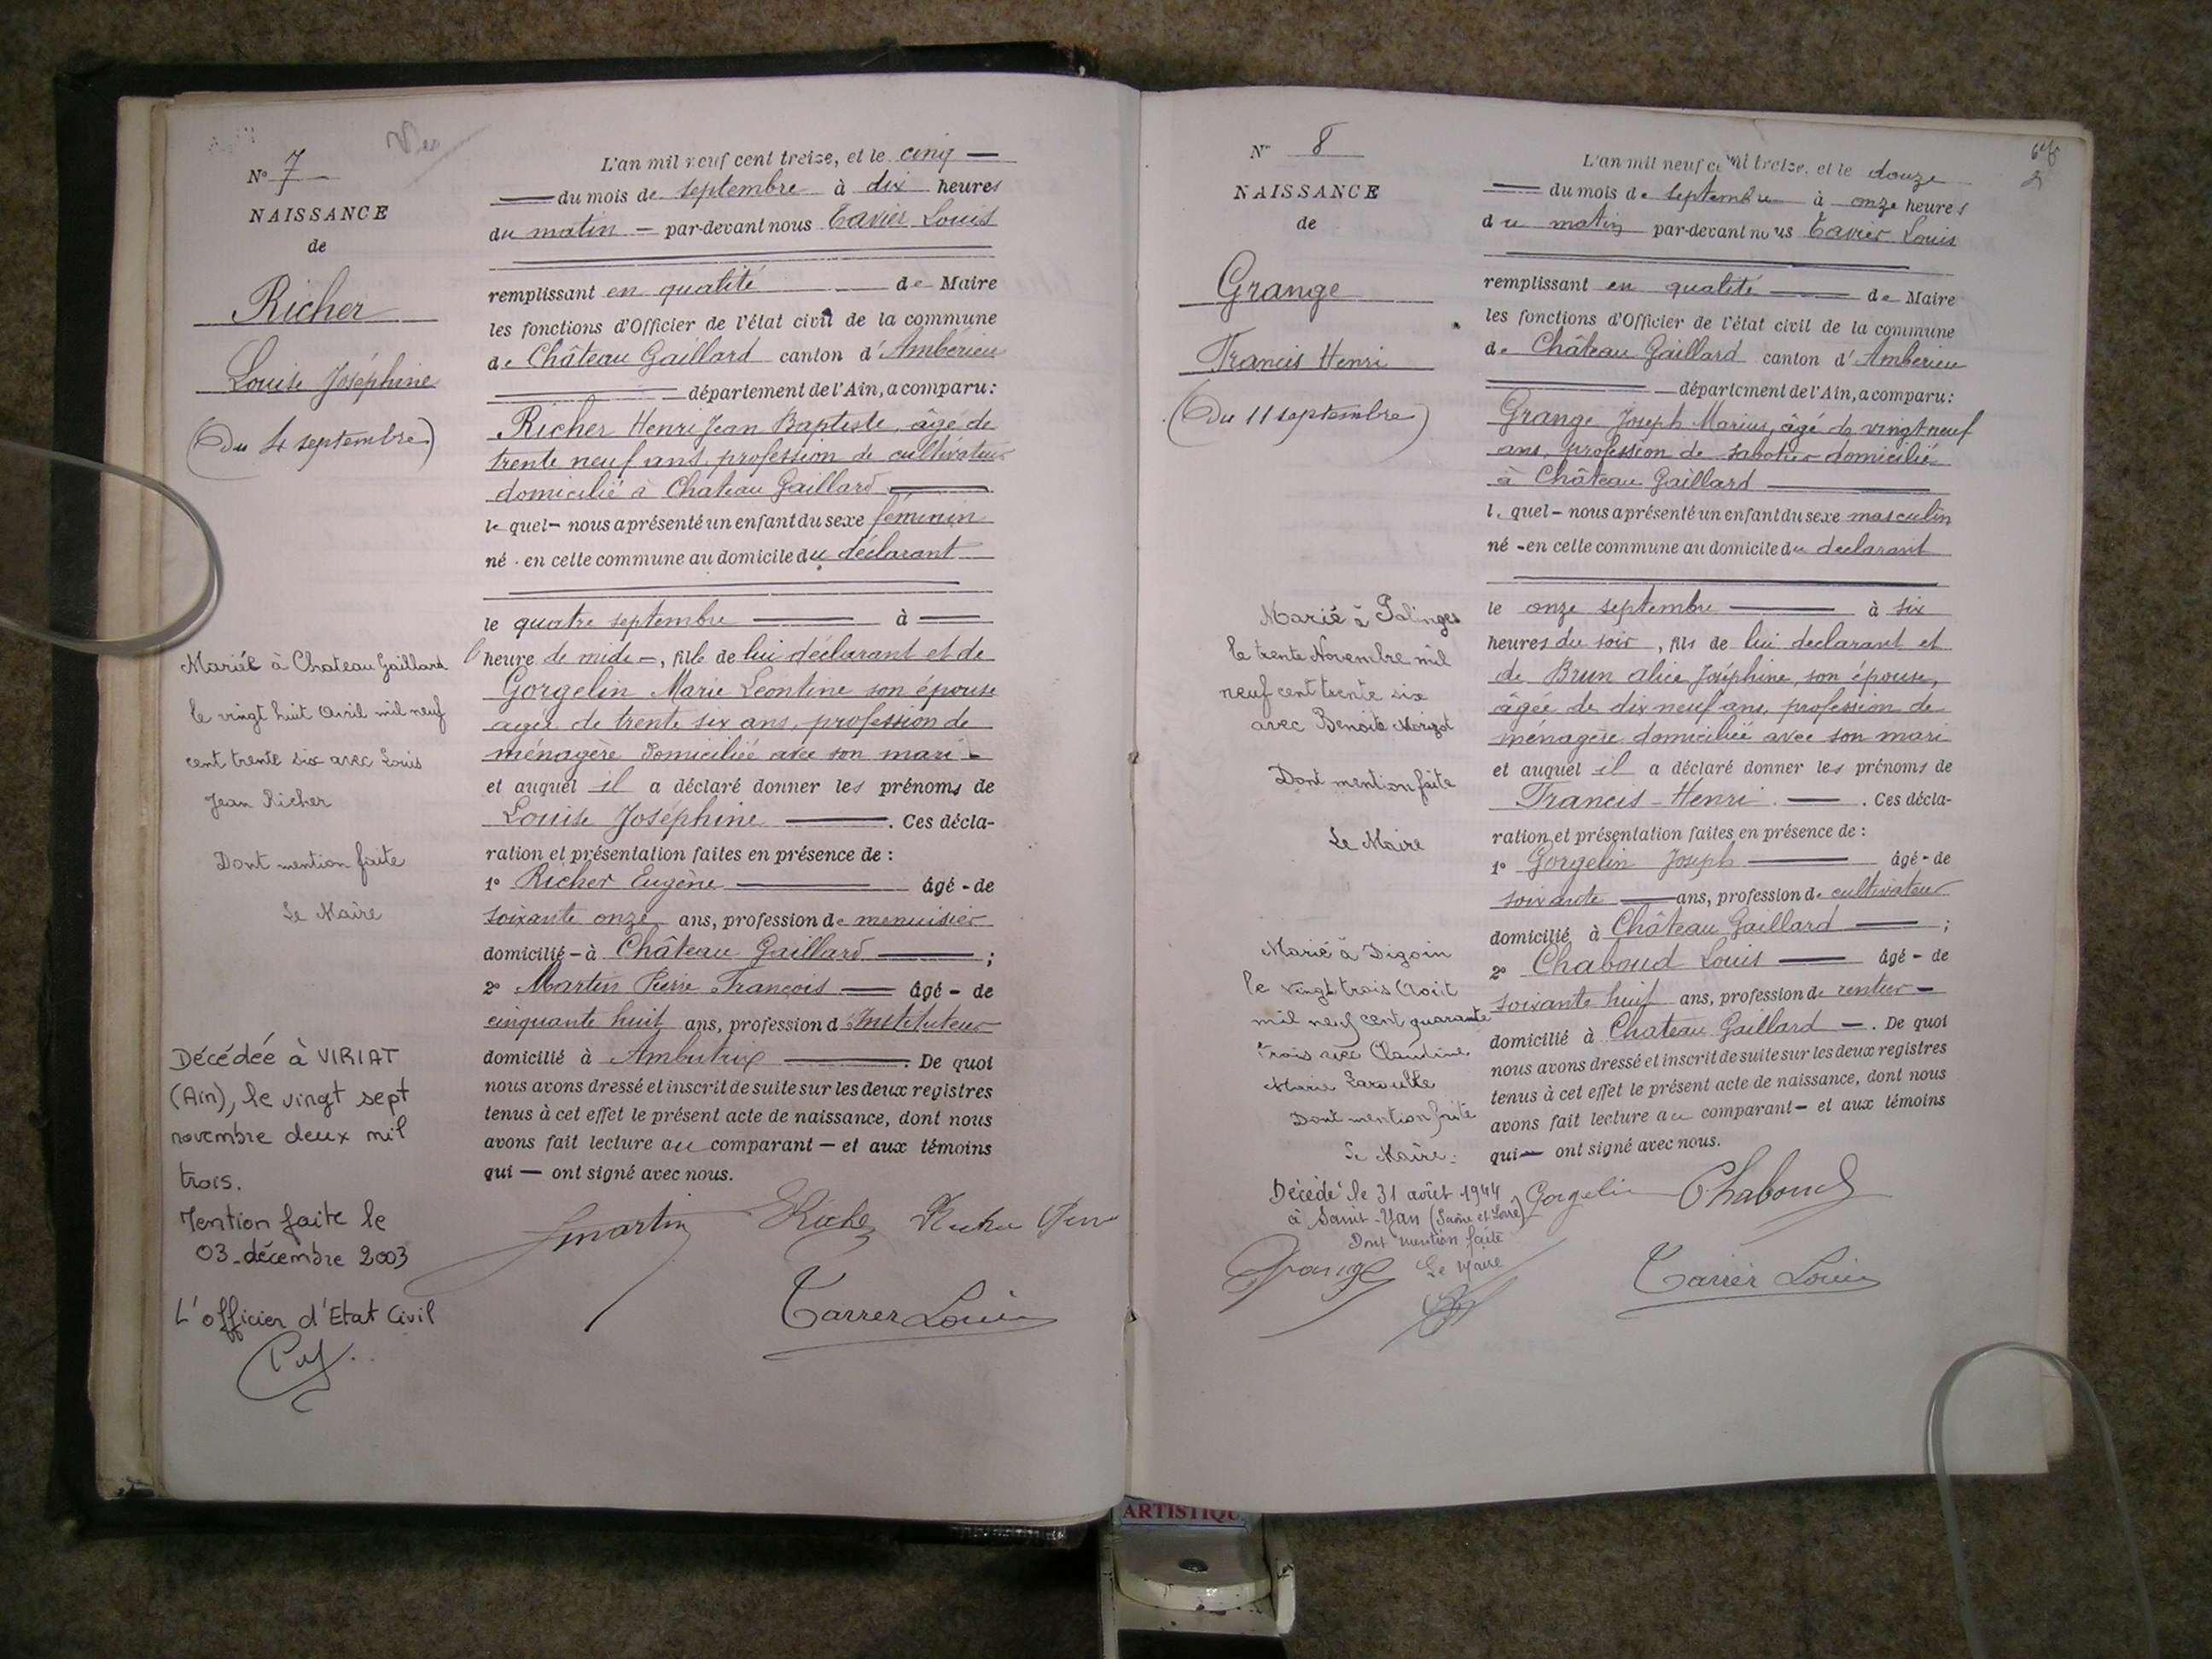 Nº 7
NAISSANCE
de
Richer
Louise Joséphine
(Du 4 septembre)
Mariée à Chateau Gaillard
le vingt huit Avril mil neuf
cent trente six avec Louis
Jean Richer
Dont mention faite
Le Maire
Décédée à VIRIAT
(Ain), le vingt sept
novembre deux mil
trois.
Mention faite le
03 décembre 2003
L'officier d'Etat Civil
L'an mil neuf cent treize, et le cinq
du mois de septembre à dix heures
du matin par-devant nous Tavier Louis
remplissant en qualité de Maire
les fonctions d'Officier de l'état civil de la commune
de Château Gaillard canton d'Ambérieu
département de l'Ain, a comparu:
Richer Henri Jean Baptiste, âgé de
trente neuf ans, profession de cultivateur
domicilié à Château Gaillard
lequel nous a présenté un enfant du sexe féminin
né en cette commune au domicile du déclarant
le quatre septembre à
l'heure de midi, fille de lui déclarant et de
Gorgelin Marie Léontine son épouse
agée de trente six ans, profession de
ménagère domiciliée avec son mari
et auquel il a déclaré donner les prénoms de
Louise Joséphine. Ces décla-
ration et présentation faites en présence de :
1º Richer Eugène âgé de
soixante onze ans, profession de menuisier
domicilié à Château Gaillard ;
2º Martin Pierre François âgé de
cinquante huit ans, profession d'Instituteur
domicilié à Ambutrix. De quoi
nous avons dressé et inscrit de suite sur les deux registres
tenus à cet effet le présent acte de naissance, dont nous
avons fait lecture au comparant et aux témoins
qui ont signé avec nous.
Martin Richer Richer
Tavier Louis
Nº 8
NAISSANCE
de
Grange
Francis Henri
(Du 11 septembre)
Marié à Palinges
le trente Novembre mil
neuf cent trente six
avec Benoite Morizot
Dont mention faite
Le Maire
Marié à Digoin
le vingt trois Août
mil neuf cent quarante
trois avec Claudine
Marie
Dont mention faite
Le Maire.
Décédé le 31 août 1944
à Saint-Yan (Saône et Loire)
Dont mention faite
Le Maire
L'an mil neuf cent treize, et le douze
du mois de septembre à onze heures
du matin par-devant nous Tavier Louis
remplissant en qualité de Maire
les fonctions d'Officier de l'état civil de la commune
de Château Gaillard canton d'Ambérieu
département de l'Ain, a comparu:
Grange Joseph Marius, âgé de vingt neuf
ans, profession de sabotier domicilié
à Château Gaillard
lequel nous a présenté un enfant du sexe masculin
né en cette commune au domicile du déclarant
le onze septembre à six
heures du soir, fils de lui déclarant et
de Brun Alice Joséphine, son épouse,
âgée de dix neuf ans, profession de
ménagère domiciliée avec son mari
et auquel il a déclaré donner les prénoms de
Francis-Henri. Ces décla-
ration et présentation faites en présence de :
1º Gorgelin Joseph âgé de
soixante ans, profession de cultivateur
domicilié à Château Gaillard ;
2º Chaboud Louis âgé de
soixante huit ans, profession de rentier
domicilié à Château Gaillard. De quoi
nous avons dressé et inscrit de suite sur les deux registres
tenus à cet effet le présent acte de naissance, dont nous
avons fait lecture au comparant et aux témoins
qui ont signé avec nous.
Gorgelin Chaboud
Grange
Tavier Louis
ARTISTIQU